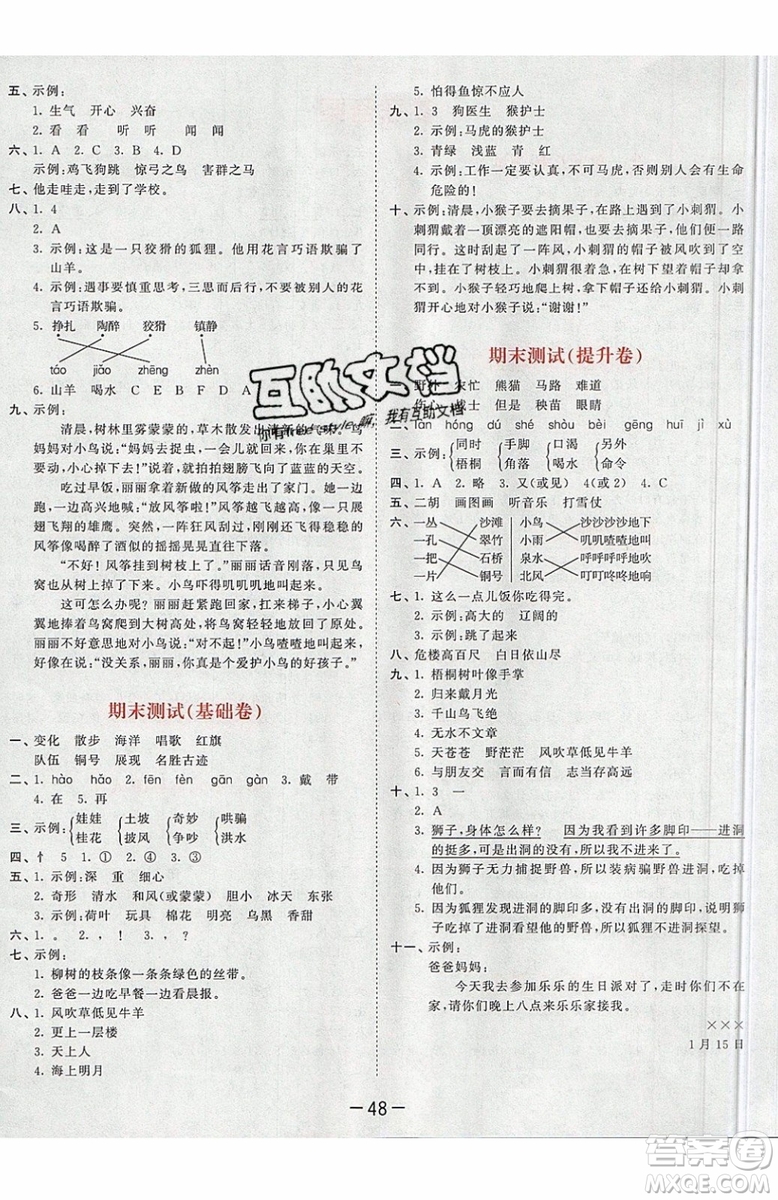 五、示例:
1. 生气 开心 兴奋
2. 看 看 听 听 闻 闻
六、1. A 2. C 3. B 4. D
示例:鸡飞狗跳 惊弓之鸟 害群之马
七、他走哇走,走到了学校。
八、1. 4
2. A
3. 示例:这是一只狡猾的狐狸。他用花言巧语欺骗了
山羊。
4. 示例:遇事要慎重思考,三思而后行,不要被别人的花
言巧语欺骗。
5. 挣扎 陶醉 狡猾 镇静
táo jiǎo zhēng zhèn
6. 山羊 喝水 C E B F D A
九、示例:
清晨,树林里雾蒙蒙的,草木散发出清新的气味。鸟
妈妈去捉虫,让鸟宝宝在家里等着。小鸟们在鸟巢里乖
乖地等着妈妈,不时拍拍翅膀看一下蓝蓝的天空。
吃过早饭,丽丽拿着新做的风筝走出了家门。她一
边跑一边高兴地喊:“放风筝喽!”风筝越飞越高,像一只展
翅飞翔的雄鹰。突然,一阵狂风迎面吹来,飞得稳稳的
风筝像喝醉了酒似的摇摇晃晃地掉了下来。
“不好!”丽丽话音刚落,风筝已挂到了树枝上,还把鸟
窝撞了下来。小鸟吓得叽叽叽地叫起来。
这可怎么办呢?丽丽赶紧跑回家,扛来梯子,小心翼
翼地捧着鸟窝爬到大树上,把鸟窝放回了原处。
丽丽不好意思地对小鸟说:“对不起!”小鸟喳喳地叫
着,好像在说:“没关系,丽丽,你真是个爱护小鸟的好孩子。”
期末测试(基础卷)
一、变化 散步 海洋 唱歌 红旗
队伍 铜号 展现 名胜古迹
二、1. hào hǎo 2. fēn fèn gān gàn 3. 戴 带
4. 在 5. 再
三、示例: 娃娃 土坡 奇妙 哄骗
桂花 披风 争吵 洪水
四、忄 5 1. ① 2. ④ 3. ②
五、1. 示例:深 重 细心
2. 奇形 清水 和风(或蒙蒙) 胆小 冰天 东张
3. 示例:荷叶 玩具 棉花 乌黑 香甜
六、1. 。 2. , ! 3. , ?
七、示例:
1. 柳树的枝条像一条条绿色的丝带。
2. 爸爸一边吃早餐一边看晨报。
八、1. 风吹草低见牛羊
2. 更上一层楼
3. 天上人
4. 海上明月
5. 怕得鱼惊不应人
九、1. 3 狗医生 猴护士
2. 示例:马虎的猴护士
3. 青绿 浅蓝 青 红
4. 示例:工作一定要认真,不可马虎,否则会有生命
危险的!
十、示例:清晨,小猴子要去摘果子,在路上遇到了小刺猬,小
刺猬戴了一顶漂亮的遮阳帽,也要去摘果子,他们便一路
同行。突然刮起了一阵风,小刺猬的帽子被风吹动起来,
正好挂在了树枝上。小刺猬着急地望着帽子却拿不
到。小猴子灵巧地爬上树干,帮小刺猬拿下帽子。小刺
猬开心地对小猴子说:“谢谢!”
期末测试(提升卷)
一、野外 农忙 熊猫 马路 难道
伤心 战士 但是 秧苗 眼睛
二、lán hóng dú shé shòu bèi gēng huī jì xù
三、示例: 同时 手脚 口渴 另外
梧桐 角落 喝水 命令
四、1. A 2. 略 3. 又(或见) 4(2) 4. C
五、二胡 画图画 听音乐 打雪仗
六、一丛 沙滩 小鸟 沙沙沙沙地下
一孔 翠竹 小雨 叽叽喳喳地叫
一把 石桥 泉水 呼呼呼呼地吼
一片 铜号 北风 叮叮咚咚地响
七、1. 这么一点儿饭你吃得完。
2. 示例:高大的 辽阔的
3. 示例:跳了起来
八、危楼高百尺 白日依山尽
九、1. 梧桐树叶像手掌
2. 归来戴月光
3. 千山鸟飞绝
4. 无水不文章
5. 天苍苍 野茫茫 风吹草低见牛羊
6. 与朋友交 言而有信
十、1. 3 一
2. A
3. 狮子,身体怎么样? 因为我看到许多脚印——进洞
的挺多,可是出洞的没有,所以我不进来了。
4. 因为狮子无力捕捉野兽,所以装病骗野兽进洞,吃掉
他们。
5. 因为狐狸发现进洞的脚印多,出洞的脚印没有,知道狮
子在说谎骗野兽进洞,所以狐狸没有进洞探望。
十一、示例:
爸爸妈妈:
今天我去参加乐乐的生日派对了,晚上不在家吃饭
了,请你们晚上八点来乐乐家接我。
×××
1月15日
— 48 —
互助文档
答案圈
MXQE.COM